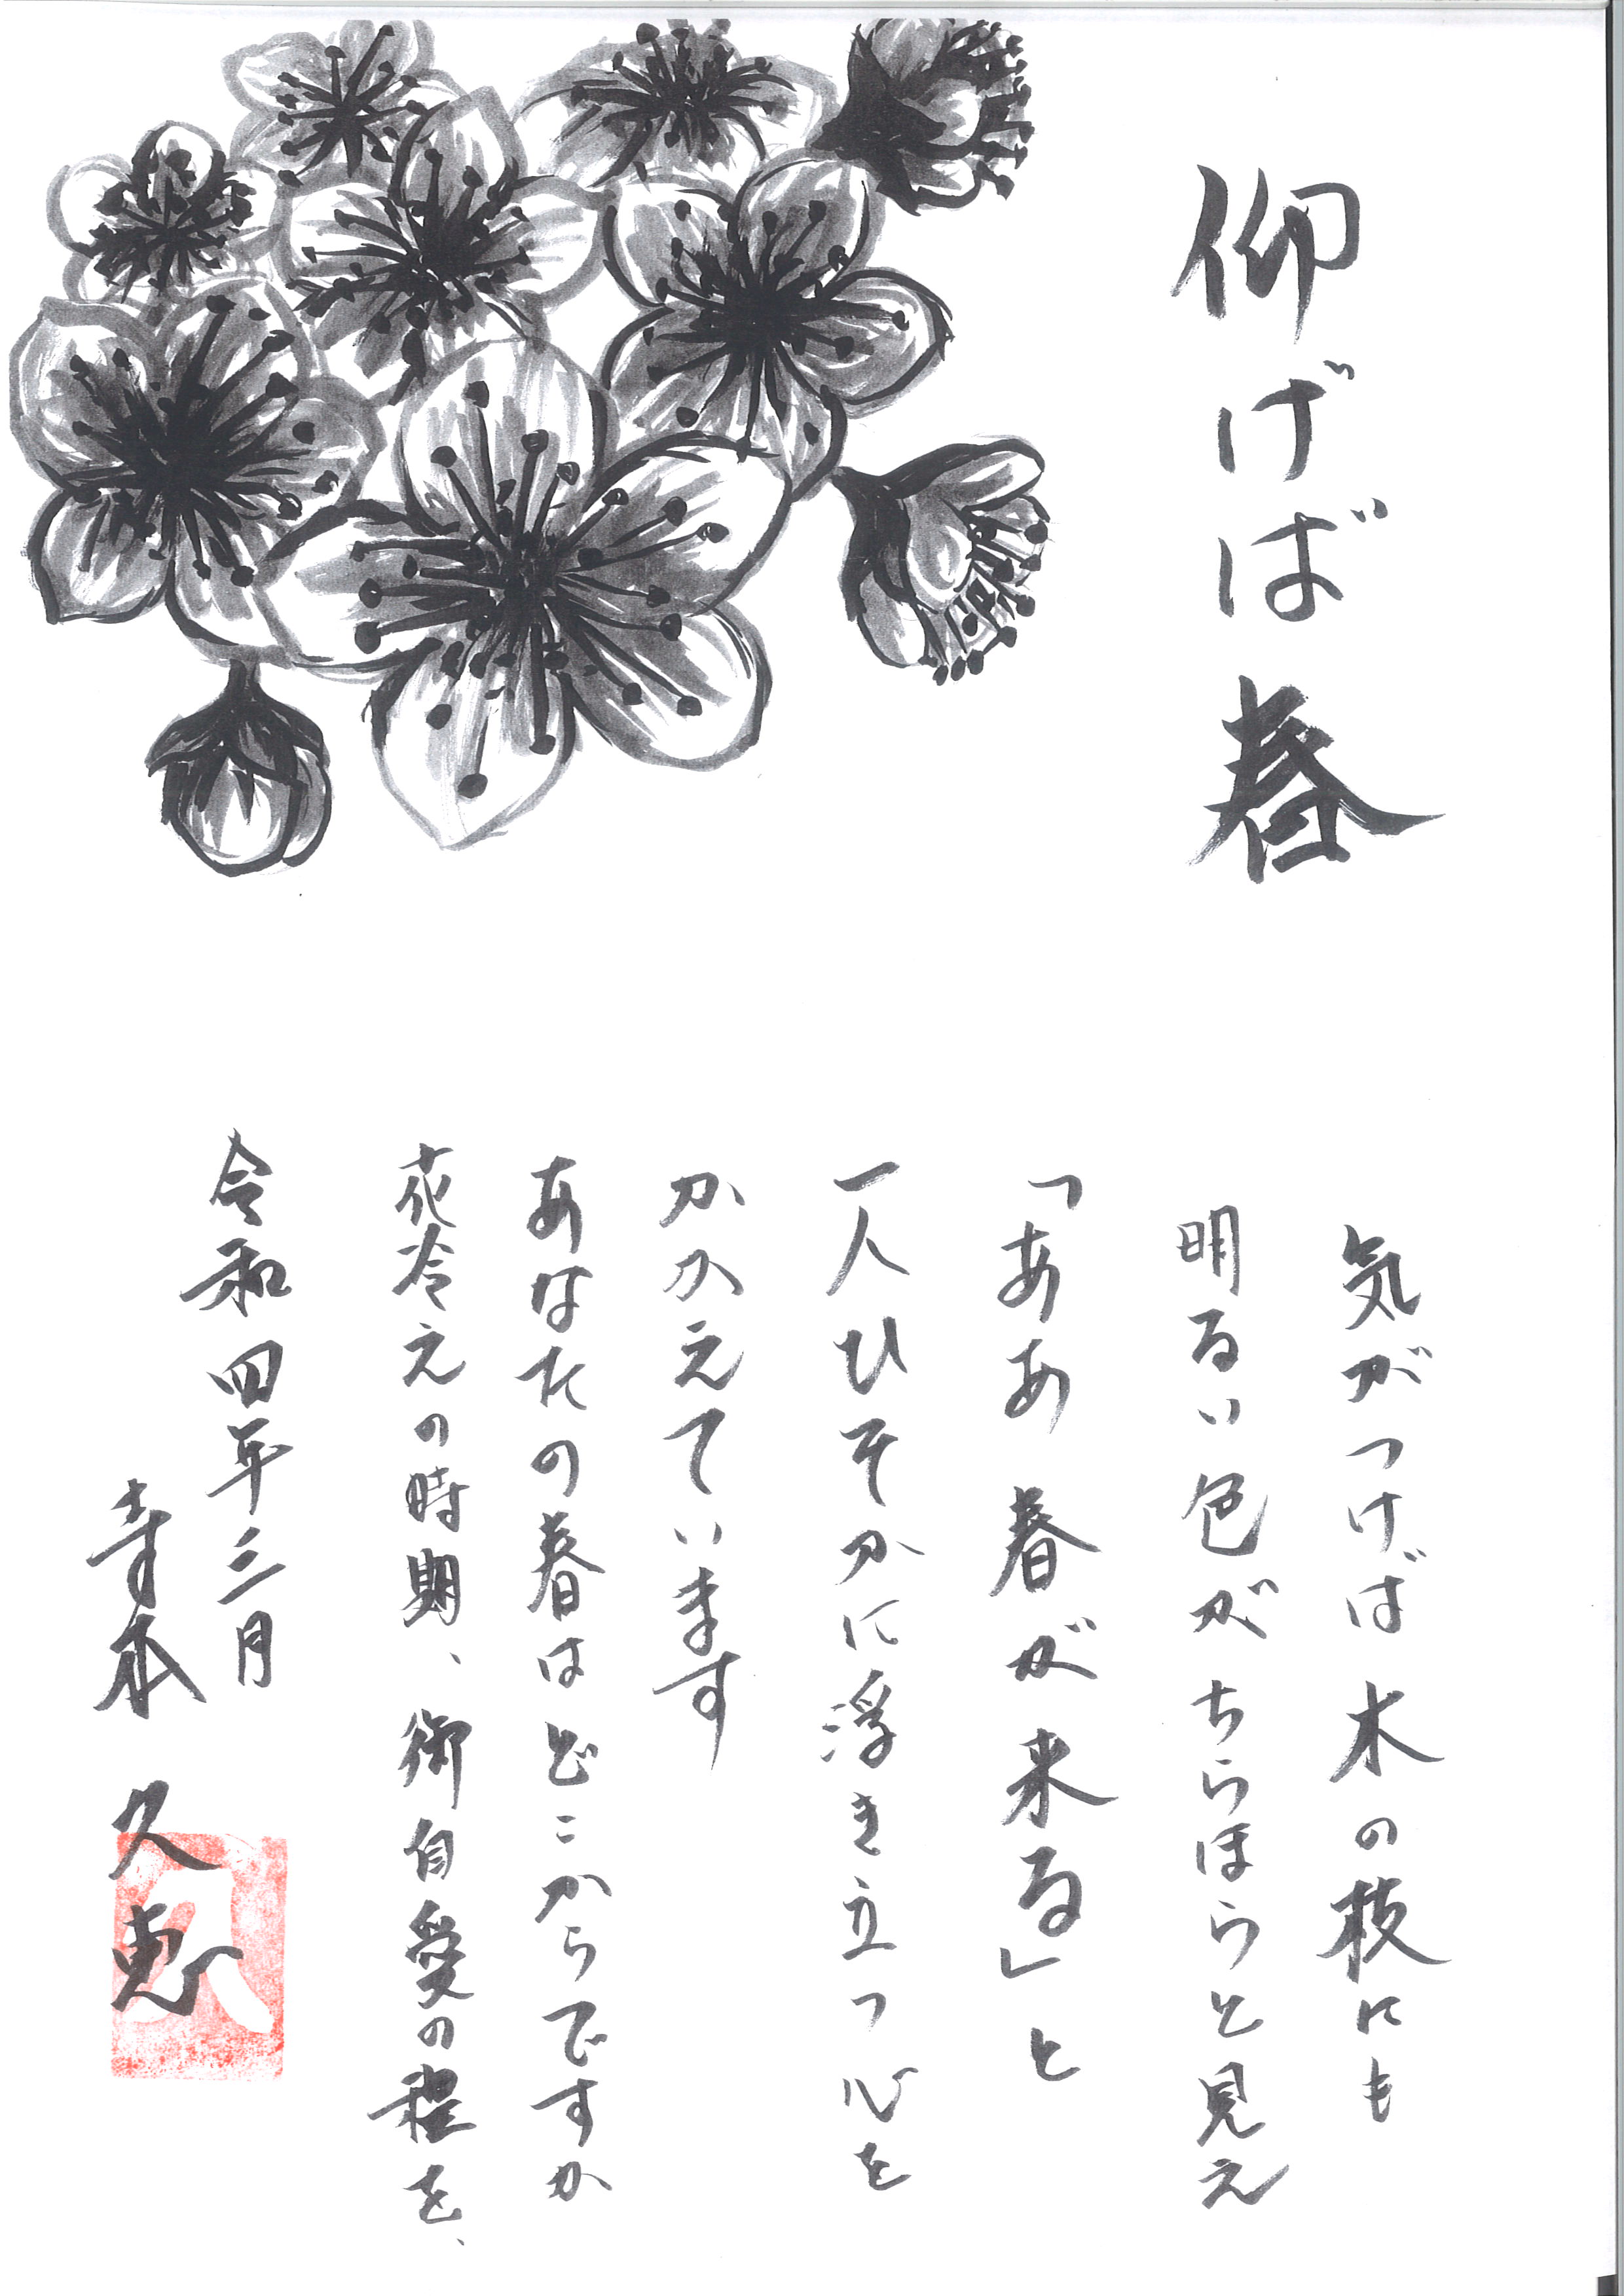 仰げば春
気がつけば木の枝にも
明るい色がちらほらと見え
「ああ 春が来る」と
一人ひそかに浮き立つ心を
かかえています
あなたの春はどこからですか
花冷えの時期、御自愛の程を、
令和四年三月
寺本 久恵